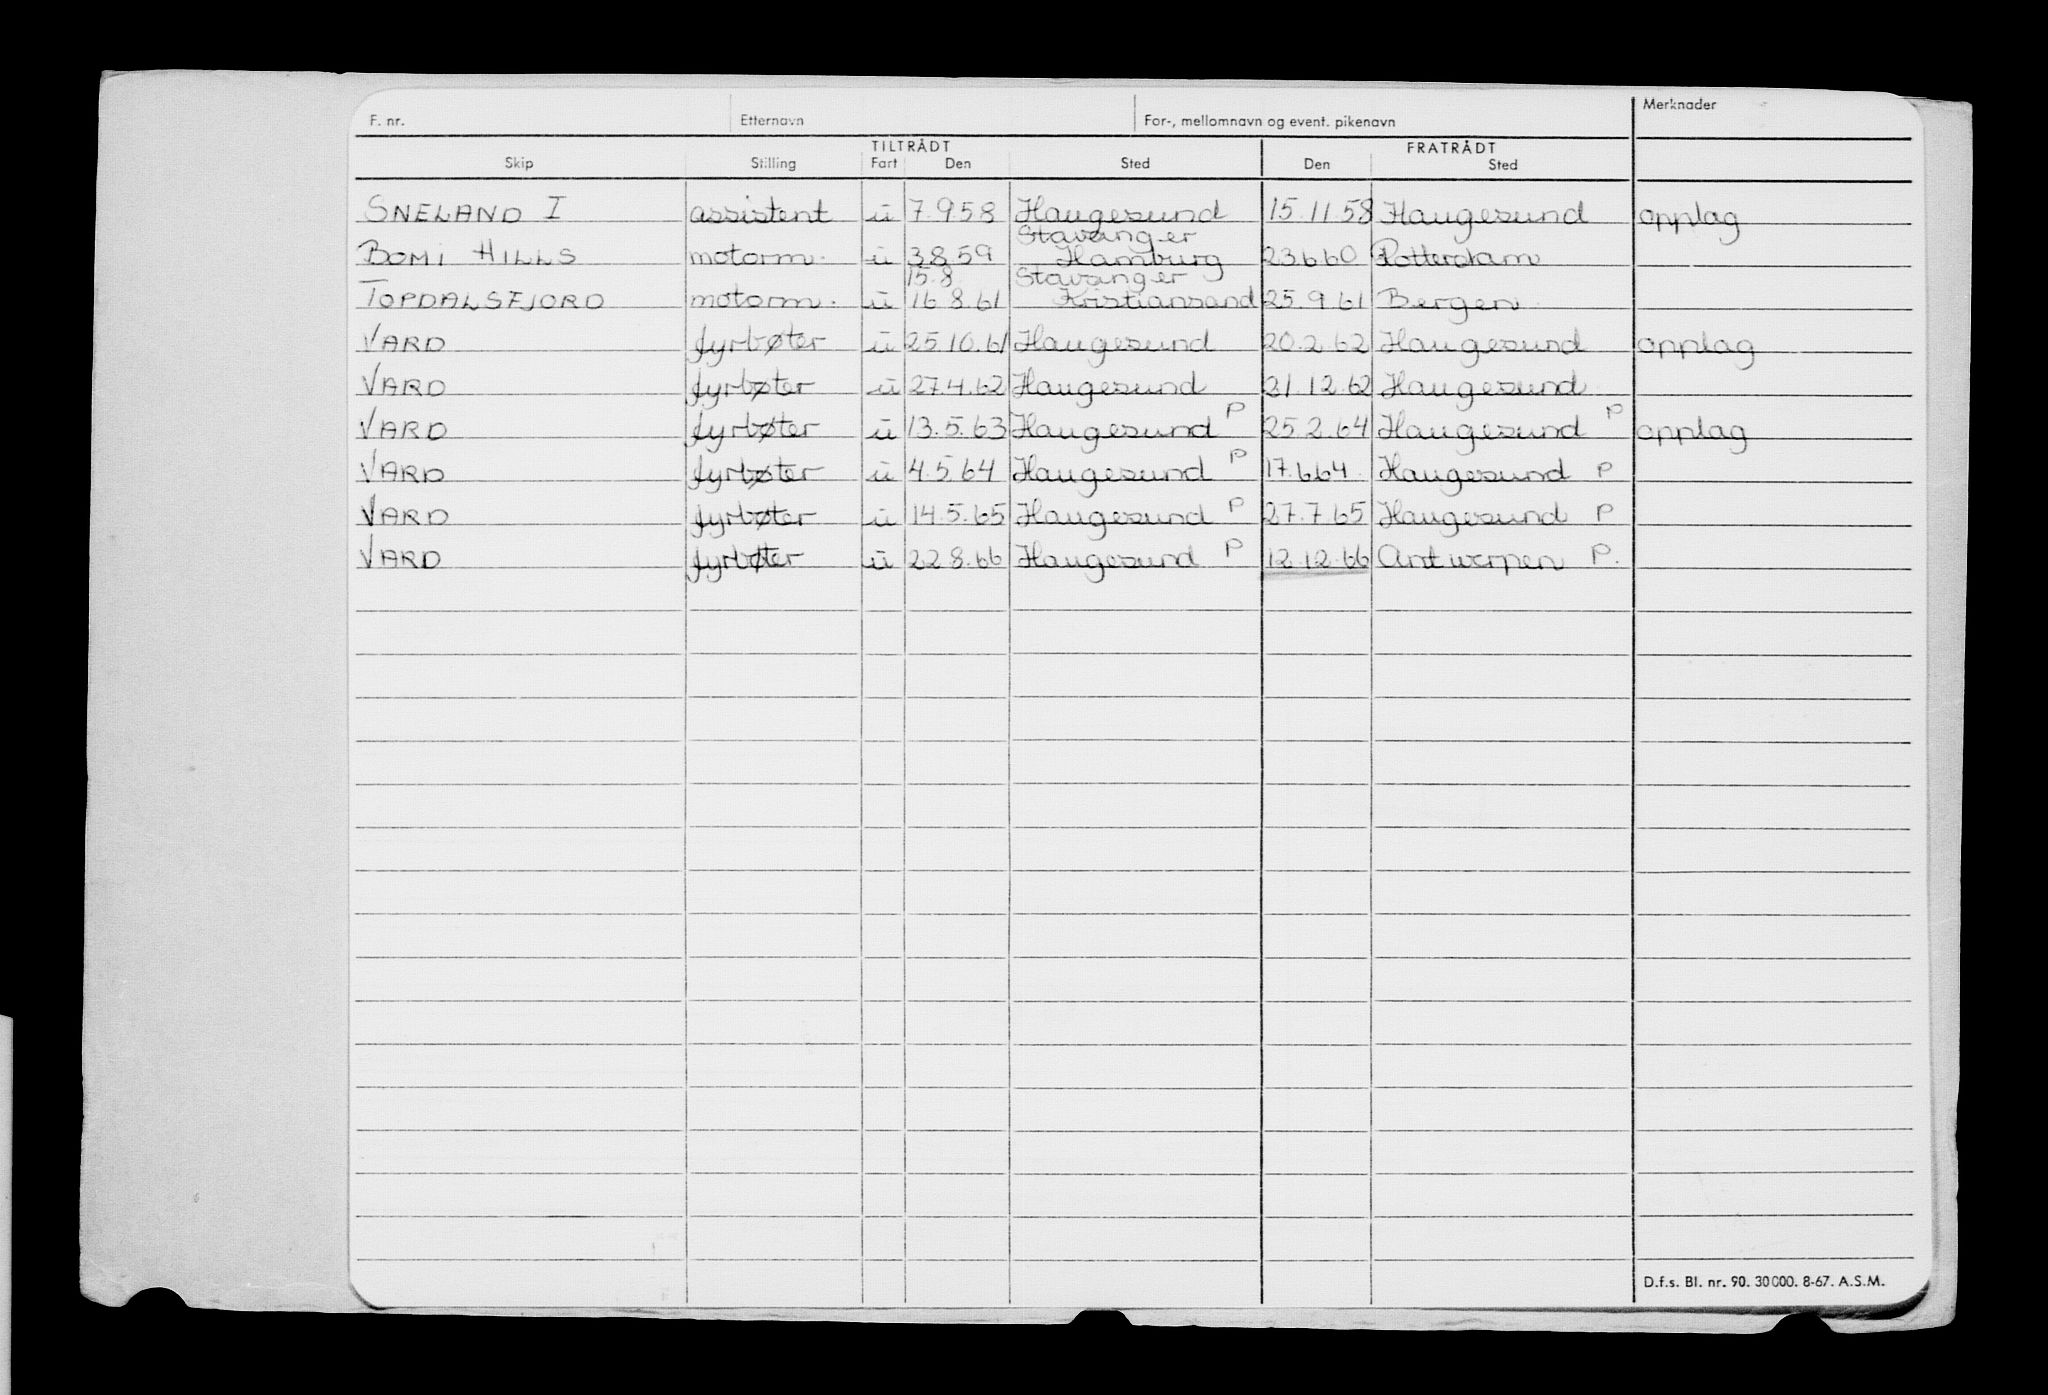 F. nr. Etternavn For-, mellomnavn og event. pikenavn Merknader
TILTRÅDT FRATRÅDT
Skip Stilling Fart Den Sted Den Sted
SNELAND I assistent u 7.9.58 Haugesund 15.11.58 Haugesund opplag
Stavanger
BOMI HILLS motorm. u 3.8.59 Hamburg 23.6.60 Rotterdam
15.8 Stavanger
TOPDALSFJORD motorm. u 16.8.61 Kristiansand 25.9.61 Bergen
VARD fyrbøter u 25.10.61 Haugesund 20.2.62 Haugesund opplag
VARD fyrbøter u 27.4.62 Haugesund 21.12.62 Haugesund
VARD fyrbøter u 13.5.63 Haugesund P 25.2.64 Haugesund P opplag
VARD fyrbøter u 4.5.64 Haugesund P 17.6.64 Haugesund P
VARD fyrbøter u 14.5.65 Haugesund P 27.7.65 Haugesund P
VARD fyrbøter u 22.8.66 Haugesund P 12.12.66 Antwerpen P.
D.f.s. Bl. nr. 90. 30000. 8-67. A.S.M.